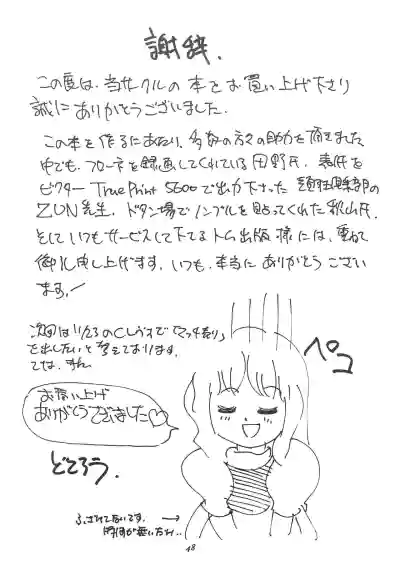 謝辞.
この度は、当サークルの本をお買い上げ下さり
誠にありがとうございました.
この本を作るにあたり、多数の方々の助力を頂きました
中でも、フローネを録画してくれている田野氏、表紙を
ビクター True Print 5600で出力下さった
ZUN先生、ドタン場でノンブルを貼ってくれた郡山氏、
そしていつもサービスして下さるトム出版様には、重ねて
御礼申し上げます。いつも、本当にありがとうござい
ます！
次回は11/23のCレヴォで「マッチ売り」
を出したいと考えております。
では、
ペコ
お買い上げ
ありがとうございました♡
どころう.
ふざけてないです.
→
48